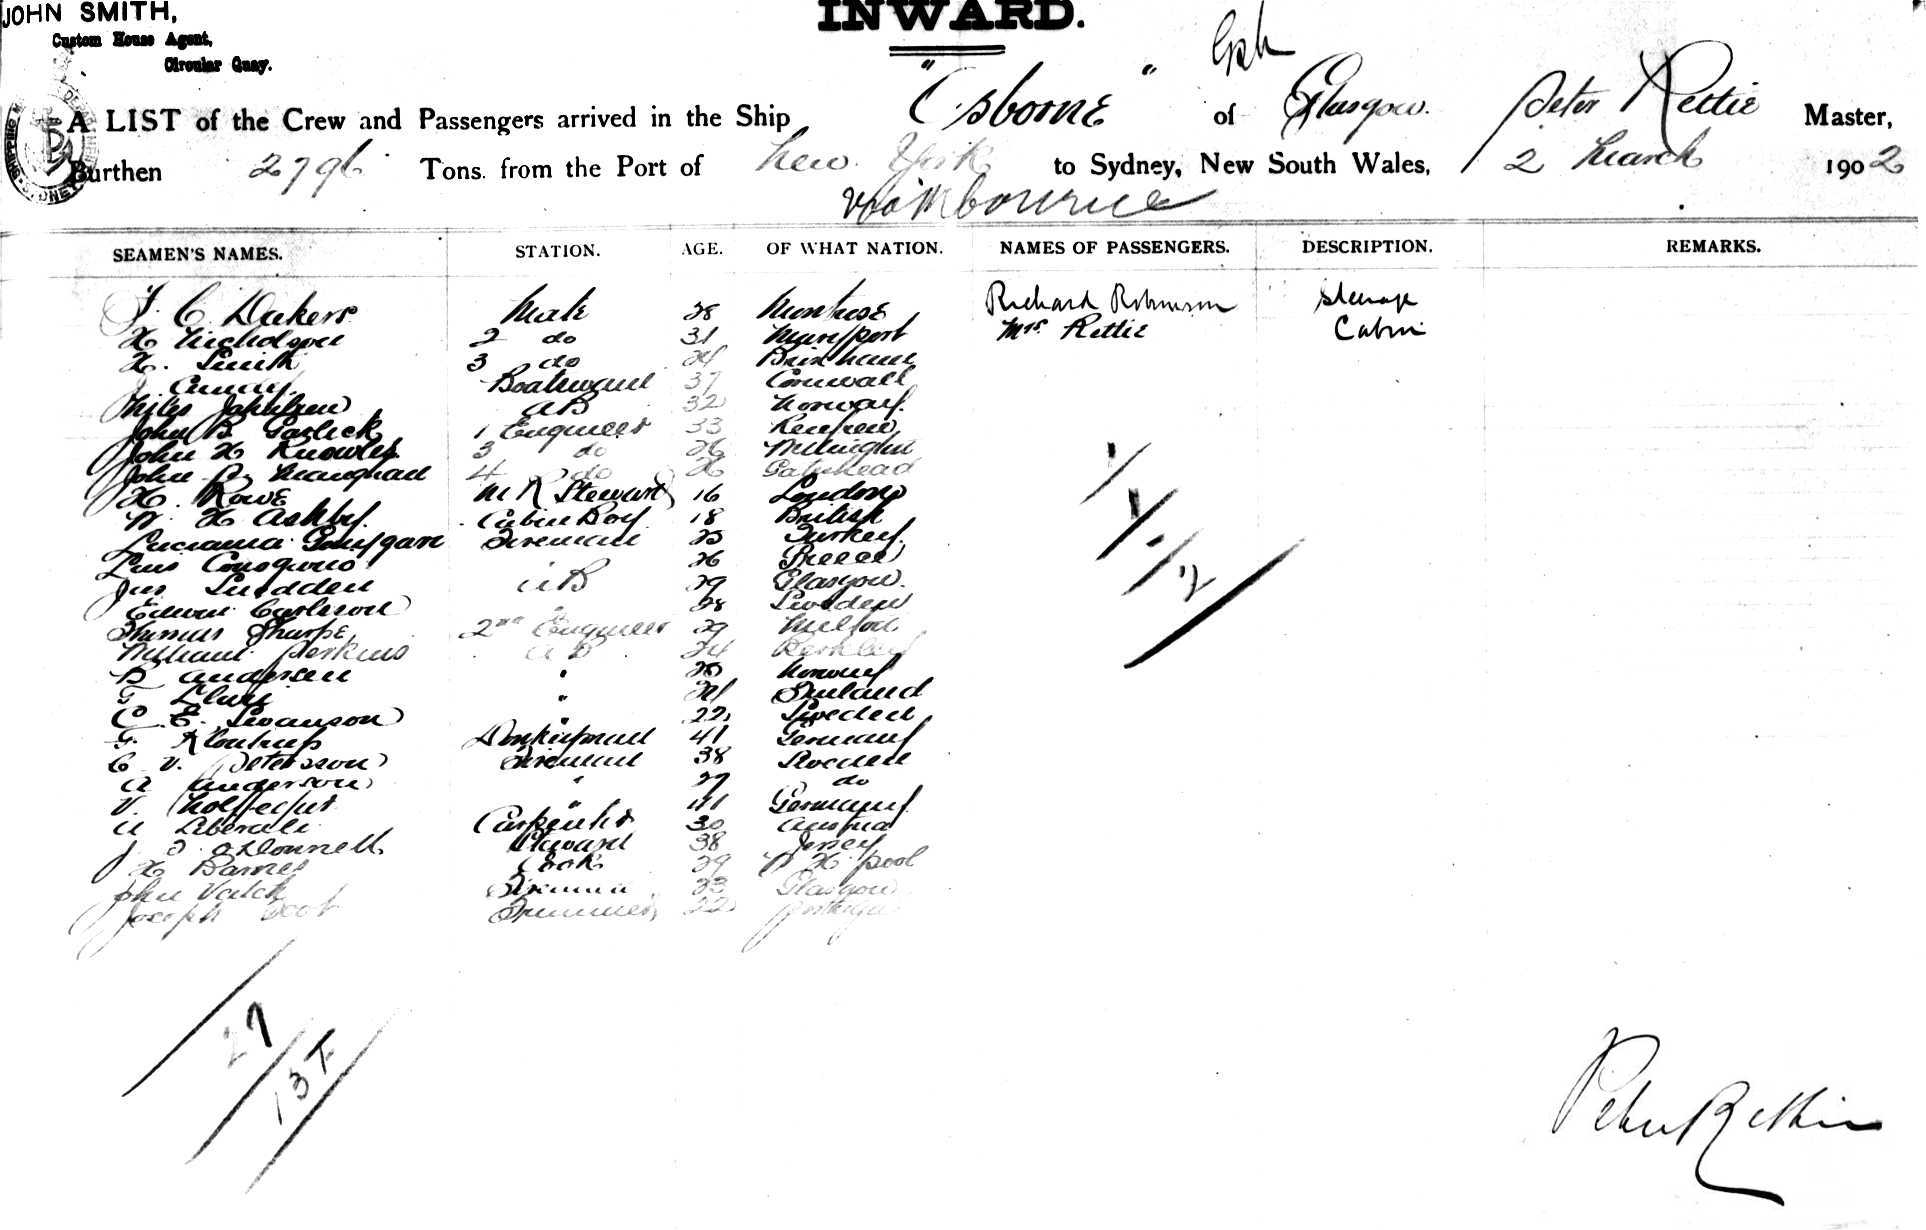 JOHN SMITH,
Custom House Agent,
Circular Quay.
INWARD.
A LIST of the Crew and Passengers arrived in the Ship "Osborne" of Glasgow. Peter Rettie Master,
Burthen 2796 Tons. from the Port of New York to Sydney, New South Wales, 2 March 1902
via Mbourne
SEAMEN'S NAMES. STATION. AGE. OF WHAT NATION. NAMES OF PASSENGERS. DESCRIPTION. REMARKS.
C. Dakers Mate 28 Montrose Richard Robinson Steerage
H Nicholson 2 do 31 Maryport Mrs. Rettie Cabin
H. Smith 3 do 24 Brixham
J. Cundy Boatswain 37 Cornwall
AB 32 Norway.
John B. Garlick 1 Engineer 33 Renfrew
John H Knowles 3 do 26
John Maughan 4 do 26 Gateshead
H. Rowe M R Steward 16 London
W. H Ashby. Cabin Boy 18 British
Fireman 25 Turkey.
26 Greece
Jas Sudden AB 29 Glasgow.
Edwin Carlsson 28 Sweden
Thomas Sharpe 2nd Engineer 29 Milford
William Perkins AB 24 Berkley
Andersen " 25 Norway
" 24 Finland
C. E. Swanson " 22 Sweden
F. Donkeyman 41 Germany
C V. Petersson Fireman 38 Sweden
A Anderson " 27 do
V. " 41 Germany.
A Liberali Carpenter 30 Austria
J. O'Donnell Steward 38 Jersey
H Barnes Cook 29 W H pool
John Veitch Fireman 33 Glasgow
Joseph Trimmer 22
1/1/2
27
137
Peter Rettie